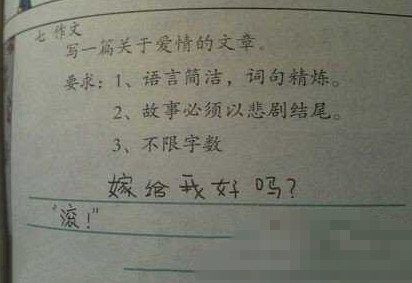 七 作文
写一篇关于爱情的文章。
要求：1、语言简洁，词句精炼。
2、故事必须以悲剧结尾。
3、不限字数
嫁给我好吗？
“滚！”